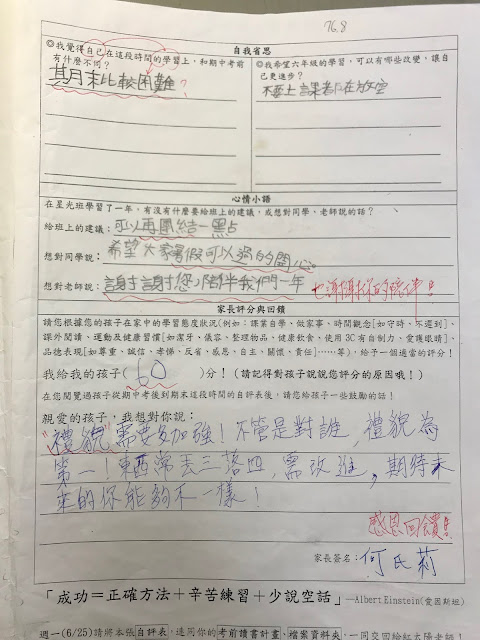 76.8
自我省思
◎我覺得自己在這段時間的學習上，和期中考前
有什麼不同？
其月末比較困難？
◎我希望六年級的學習，可以有哪些改變，讓自
己更進步？
不要上課都在放空
心情小語
在星光班學習了一年，有沒有什麼要給班上的建議，或想對同學、老師說的話？
給班上的建議：可以再團結一點
想對同學說：希望大家暑假可以過的開心
想對老師說：謝謝您陪伴我們一年
也謝謝你的陪伴！
家長評分與回饋
請您根據您的孩子在家中的學習態度狀況(例如：課業自學、做家事、時間觀念[如守時、不遲到]、
課外閱讀、運動及健康習慣[如潔牙、儀容、整理物品、健康飲食、使用3C有自制力、愛護眼睛]、
品德表現[如尊重、誠信、孝悌、反省、感恩、自主、關懷、責任]……等)，給予一個適當的評分！
我給我的孩子(60)分！(請記得對孩子說說您評分的原因哦！)
在您閱覽過孩子從期中考後到期末這段時間的自評表後，請您給孩子一些鼓勵的話！
親愛的孩子，我想對你說：
"禮貌"需要多加強！不管是對誰，禮貌為
第一！東西常丟三落四，需改進，期待未
來的你能夠不一樣！
感恩回饋！！
家長簽名：何氏莉
「成功＝正確方法＋辛苦練習＋少說空話」—Albert Einstein(愛因斯坦)
週一(6/25)請將本張自評表，連同你的考前讀書計畫、檔案資料夾，一同交回給紅太陽老師！